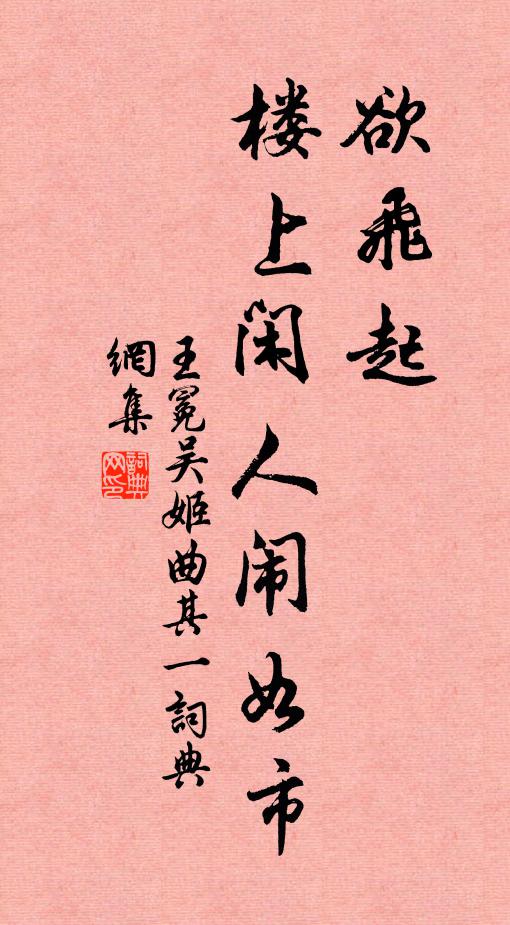 欲飛起
楼上闲人闹如市
王冕吴姬曲其一詞典
網集
詞典網印